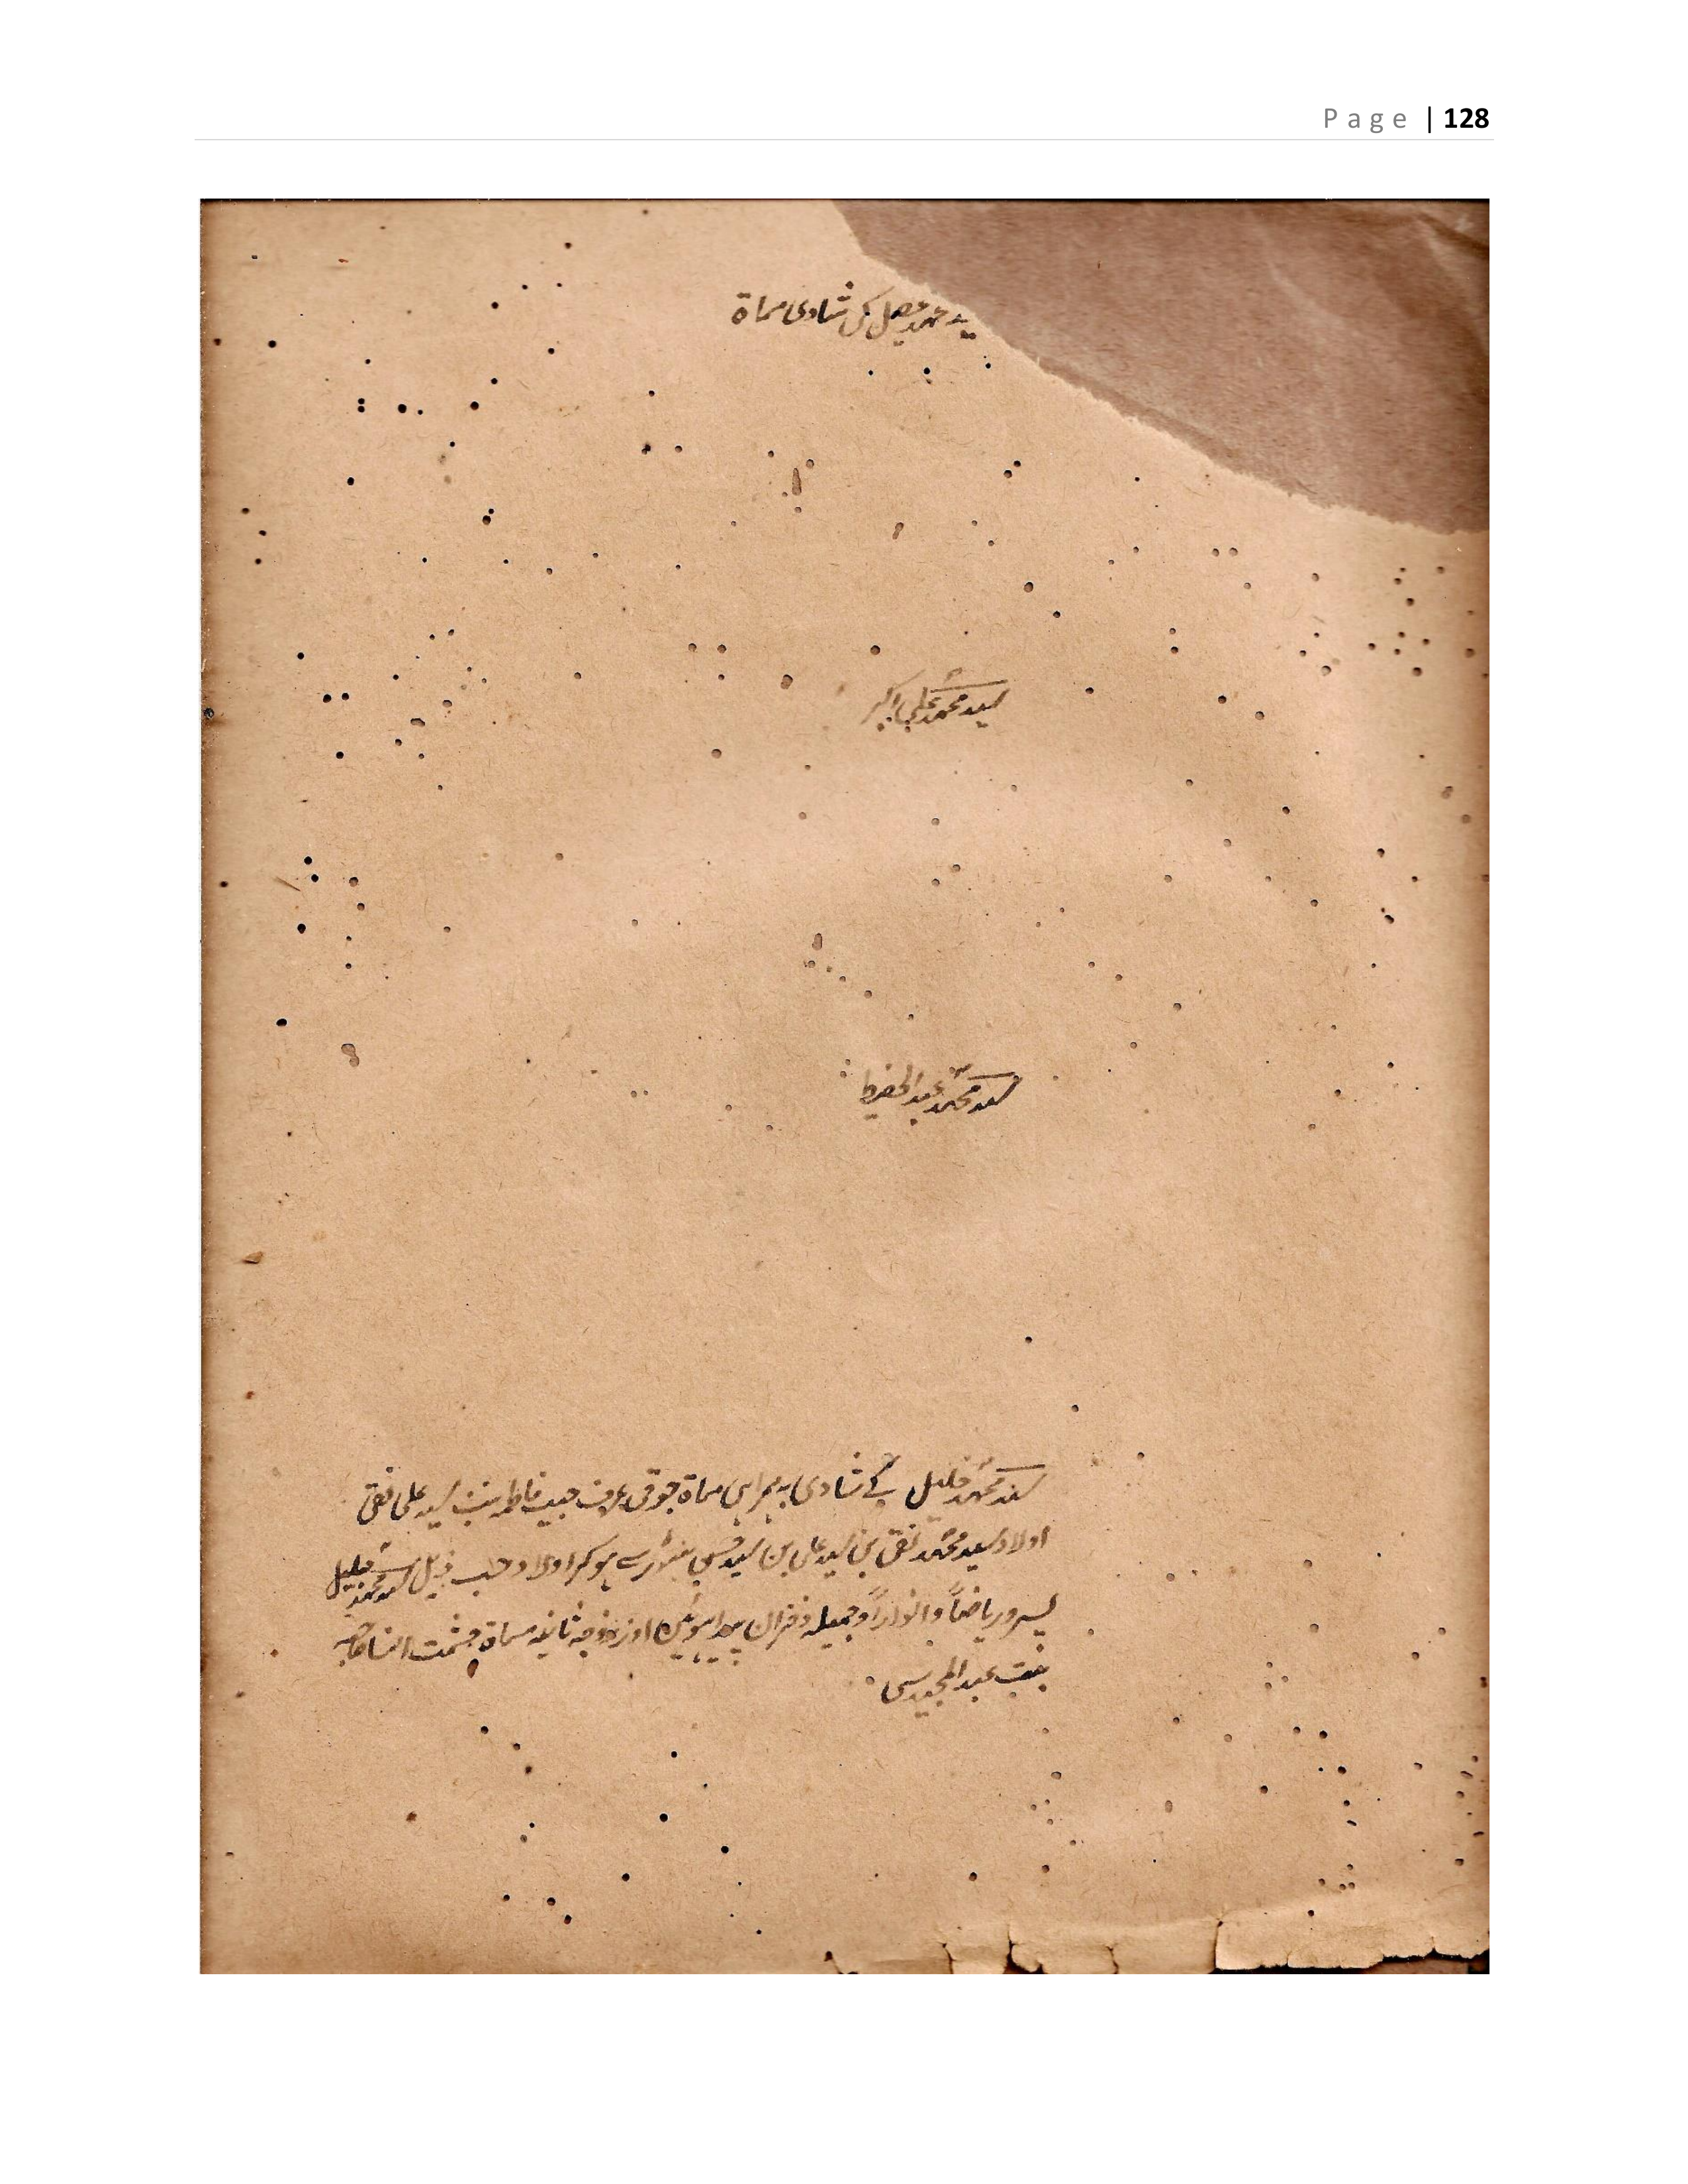 Page | 128
سید محمد فضل کی شادی مسماۃ
سید محمد علی اکبر
سید محمد عبد الحفیظ
سید محمد خلیل کے شادی ہمراہی مسماۃ عرف حبیب فاطمہ بنت سید علی نقی
اولاد سید محمد تقی بن سید علی بن سید سے ہوکر اولاد حسب ذیل سید محمد جلیل
پسر و ریاضاً و انواراً و جمیلہ دختران پیدا ہوئیں اور زوجہ ثانیہ مسماۃ حشمت النسا
بنت عبد المجید سے